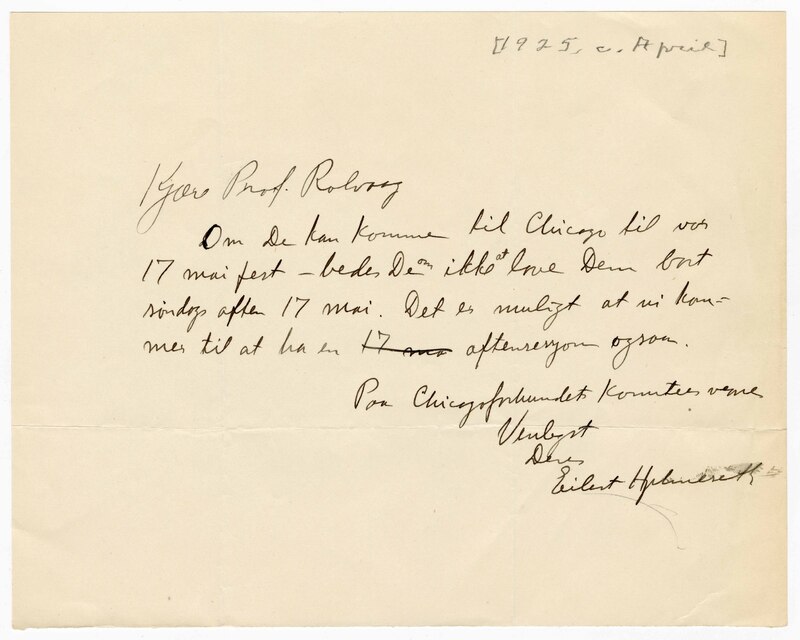 [1925, c. April]
Kjære Prof. Rolvaag
Om De kan komme til Chicago til vor
17 mai fest – bedes De om ikke at love Dem bort
søndags aften 17 mai. Det er muligt at vi kom-
mer til at ha en 17 ma aftensesjon ogsaa.
Paa Chicagoforbundets Komites vegne
Venligst
Deres
Eilert